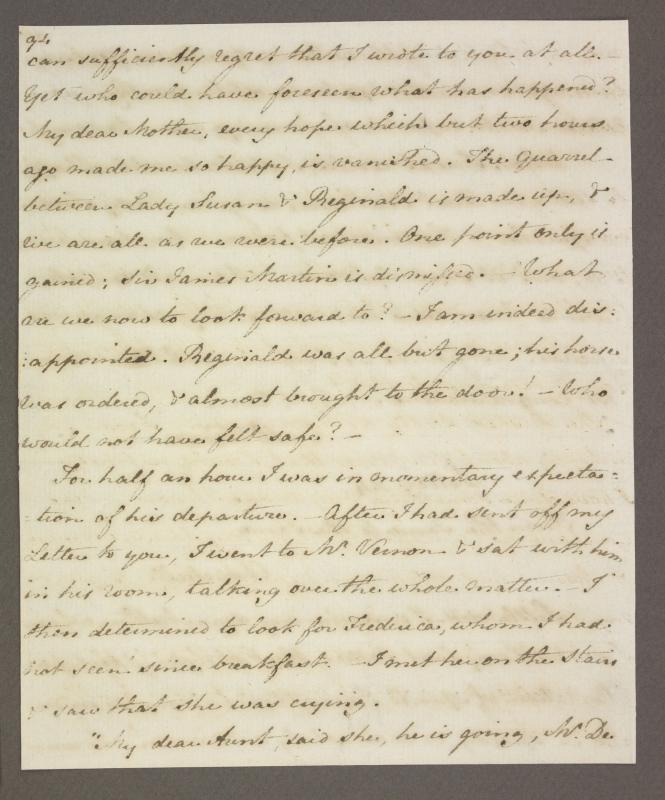 94
can sufficiently regret that I wrote to you at all. –
Yet who could have foreseen what has happened?
My dear Mother, every hope which but two hours
ago made me so happy, is vanished. The Quarrel
between Lady Susan & Reginald is made up, &
we are all as we were before. One point only is
gained; Sir James Martin is dismissed. – What
are we now to look forward to? – I am indeed dis:
:appointed. Reginald was all but gone; his horse
was ordered, & almost brought to the door! – Who
would not have felt safe? –
For half an hour I was in momentary expecta:
:tion of his departure. – After I had sent off my
Letter to you, I went to Mr. Vernon & sat with him
in his room, talking over the whole matter. – I
then determined to look for Frederica, whom I had
not seen since breakfast. – I met her on the Stairs
& saw that she was crying.
"My dear Aunt, said she, he is going, Mr. De